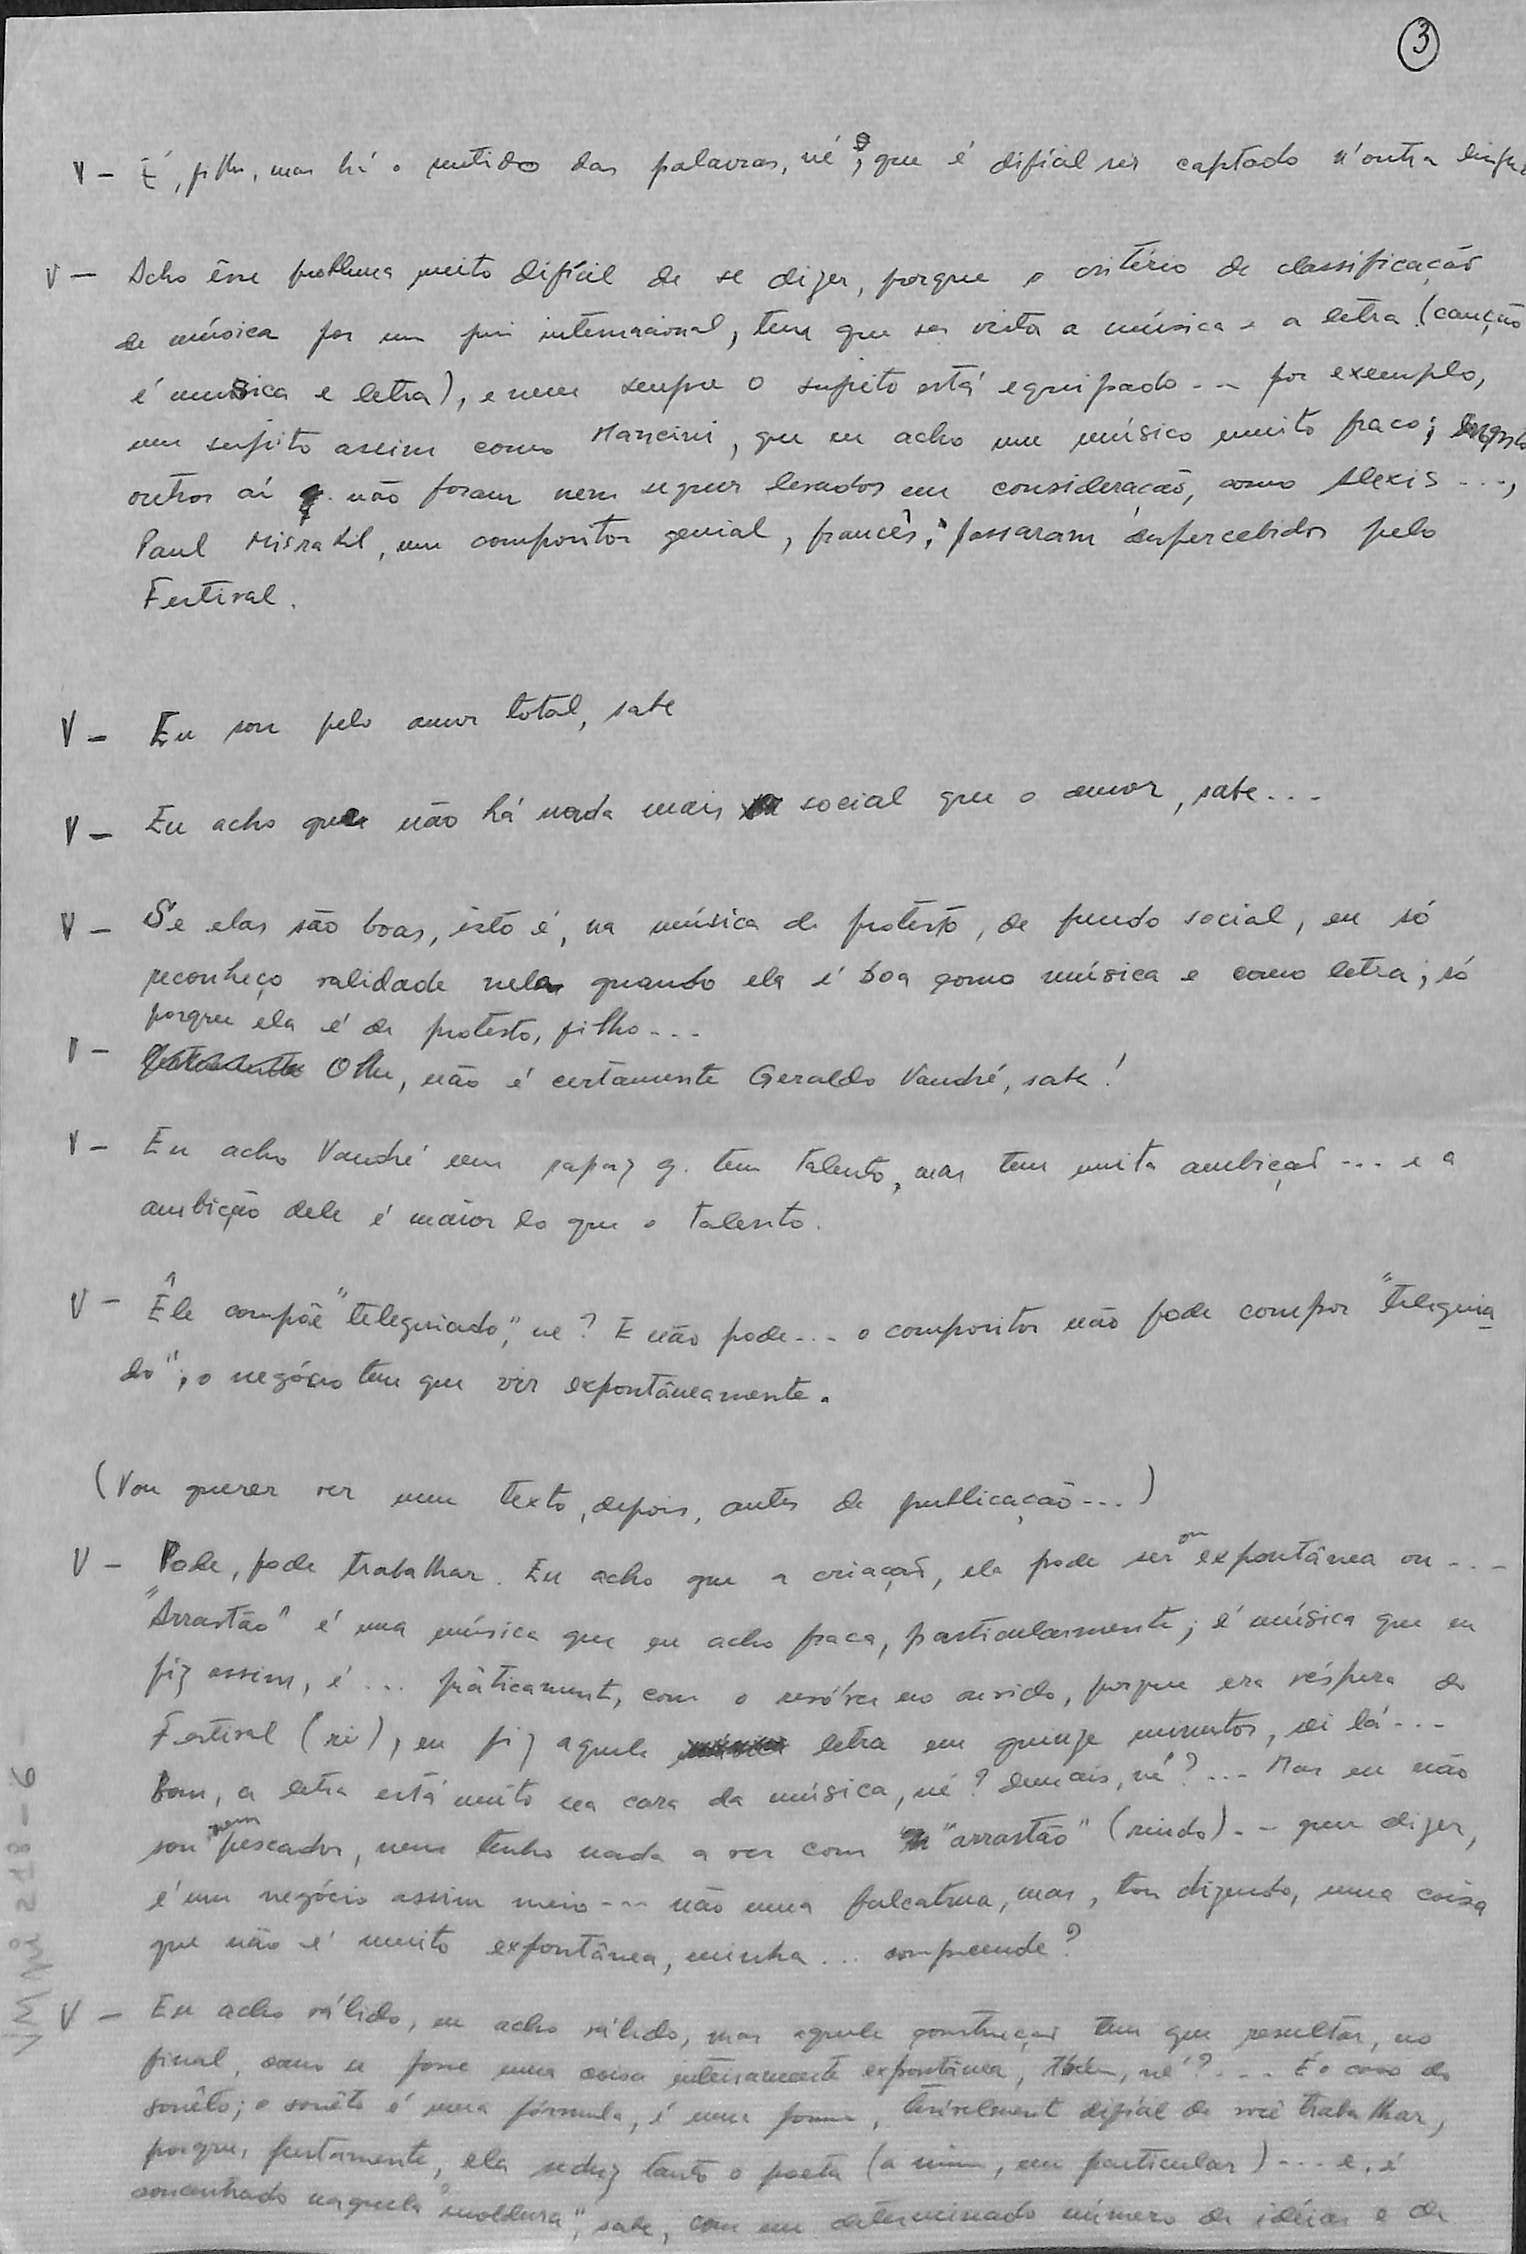 3
V - É, filho, mas há o sentido das palavras, né?, que é difícil ser captado n'outra língua
V - Acho êsse problema muito difícil de se dizer, porque o critério de classificação
de música por um juri internacional, tem que ser vista a música e a letra (canção
é musica e letra), e nem sempre o sujeito está equipado -- por exemplo,
um sujeito assim como Mancini, que eu acho um músico muito fraco; enquanto
outros aí q. não foram nem sequer levados em consideração, como Alexis ...,
Paul Misraki, um compositor genial, francês, passaram despercebidos pelo
Festival.
V - Eu sou pelo amor total, sabe
V - Eu acho que não há nada mais social que o amor, sabe...
V - Se elas são boas, isto é, na música de protesto, de fundo social, eu só
reconheço validade nela quando ela é boa como música e como letra; só
porque ela é de protesto, filho...
V - Olhe, não é certamente Geraldo Vandré, sabe!
V - Eu acho Vandré um rapaz q. tem talento, mas tem muita ambição ... e a
ambição dele é maior do que o talento.
V - Êle compõe "teleguiado", né? E não pode... o compositor não pode compor "teleguia-
do"; o negócio tem que vir expontâneamente.
(Vou querer ver um texto, depois, antes de publicação...)
V - Pode, pode trabalhar. Eu acho que a criação, ela pode ser ou expontânea ou ...
"Arrastão" é uma música que eu acho fraca, particularmente; é música que eu
fiz assim, é ... pràticamente, com o revólver no ouvido, porque era véspera do
Festival (ri), eu fiz aquela letra em quinze minutos, sei lá...
Bom, a letra está muito na cara da música, né? demais, né? ... Mas eu não
sou nem pescador, nem tenho nada a ver com "arrastão" (rindo) -- quer dizer,
é um negócio assim meio --- não uma falcatrua, mas, tou dizendo, uma coisa
que não é muito expontânea, minha ... compreende?
V - Eu acho válido, eu acho válido, mas aquela construção tem que resultar, no
final, como se fosse uma coisa inteiramente expontânea, né? ... É o caso do
sonêto; o sonêto é uma fórmula, é uma forma, terrivelmente difícil de você trabalhar,
porque, justamente, ela seduz tanto o poeta (a mim, em particular) ... e, é
concentrado naquela "moldura", sabe, com um determinado número de idéias e de
VM pi 218-6